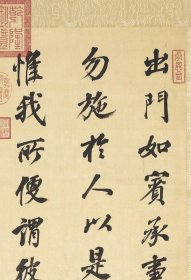 出門如賓承事
勿施於人以是
惟我所便謂彼